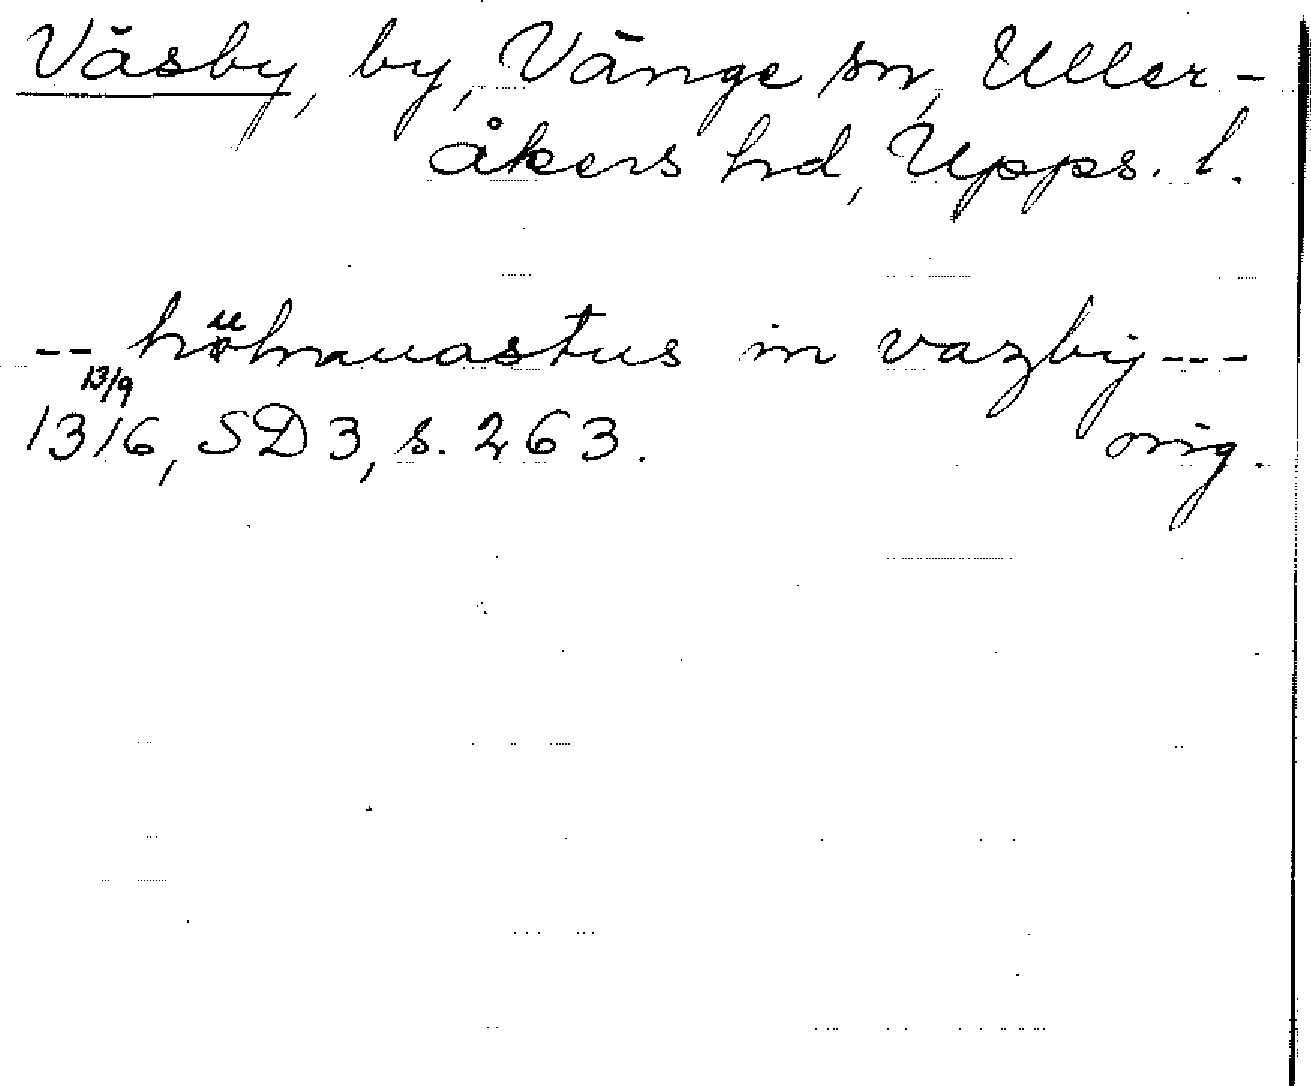 Väsby, by, Vänge sn, Uller-
åkers hd, Upps. l.
-- in vazby ---
13/9
1316, SD 3, s. 263. orig.